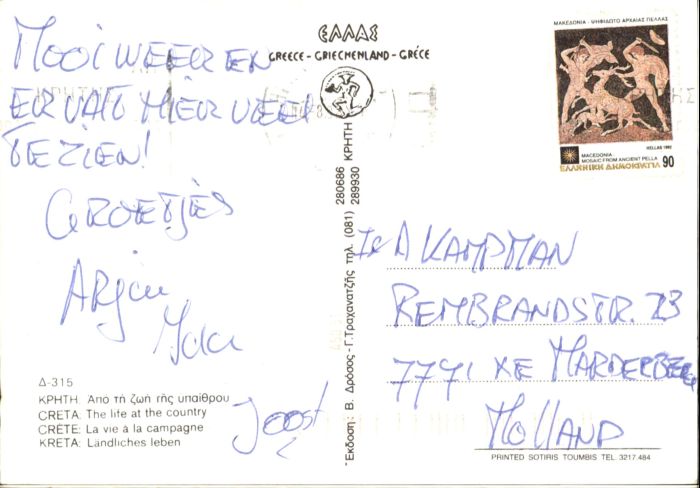 MOOI WEER EN
ER VALT HIER VEEL
TE ZIEN!
GROETJES
ARJAN
Ida
Joost
Δ-315
ΚΡΗΤΗ: Από τή ζωή τής υπαίθρου
CRETA: The life at the country
CRÈTE: La vie à la campagne
KRETA: Ländliches leben
ΕΛΛΑΣ
GREECE - GRIECHENLAND - GRÉCE
Έκδοση: Β. Δρόσος - Γ. Τραχανατζής τηλ. (081) 280686 289930 ΚΡΗΤΗ
ΜΑΚΕΔΟΝΙΑ - ΨΗΦΙΔΩΤΟ ΑΡΧΑΙΑΣ ΠΕΛΛΑΣ
HELLAS 1992
MACEDONIA
MOSAIC FROM ANCIENT PELLA
90
ΕΛΛΗΝΙΚΗ ΔΗΜΟΚΡΑΤΙΑ
KAMPMAN
REMBRANDSTR. 23
7771 XE HARDENBERG
HOLLAND
PRINTED SOTIRIS TOUMBIS TEL. 3217.484